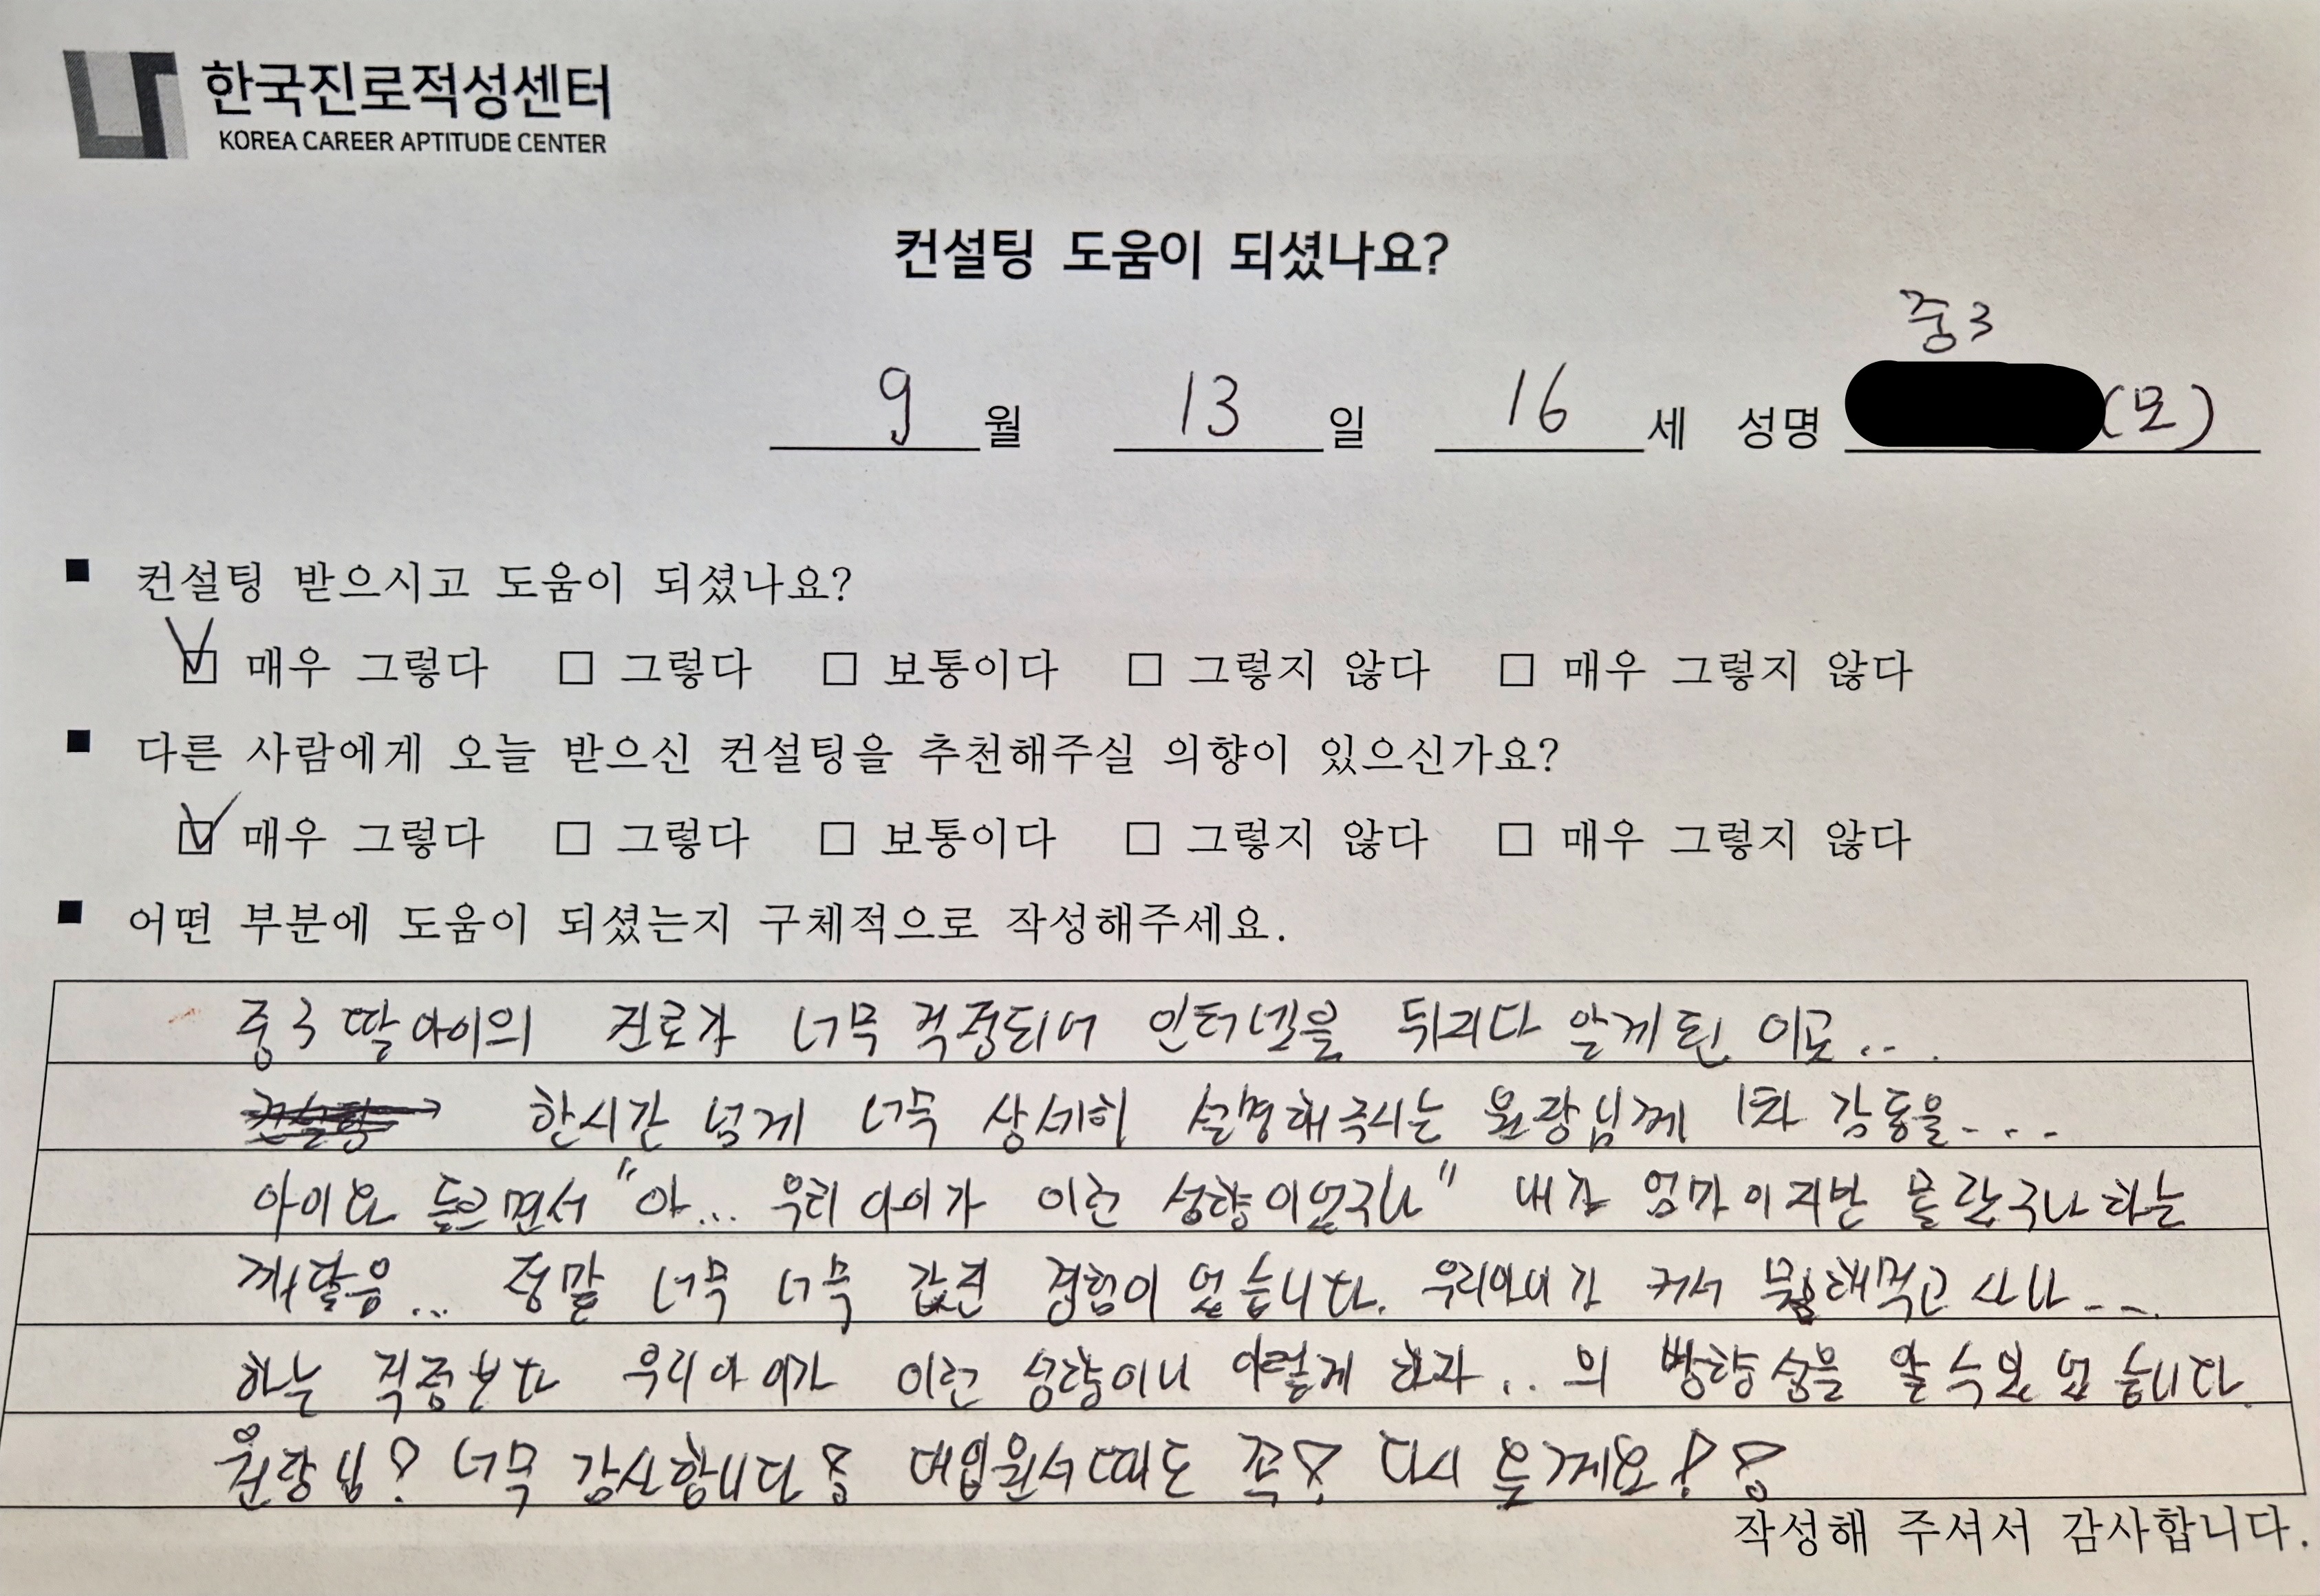 한국진로적성센터
KOREA CAREER APTITUDE CENTER
컨설팅 도움이 되셨나요?
중3
9 월 13 일 16 세 성명 (모)
■ 컨설팅 받으시고 도움이 되셨나요?
☑ 매우 그렇다 □ 그렇다 □ 보통이다 □ 그렇지 않다 □ 매우 그렇지 않다
■ 다른 사람에게 오늘 받으신 컨설팅을 추천해주실 의향이 있으신가요?
☑ 매우 그렇다 □ 그렇다 □ 보통이다 □ 그렇지 않다 □ 매우 그렇지 않다
■ 어떤 부분에 도움이 되셨는지 구체적으로 작성해주세요.
중3 딸아이의 진로가 너무 걱정되어 인터넷을 뒤지다 알게 된 이곳...
한시간 넘게 너무 상세히 설명해주시는 원장님께 1차 감동을...
아이와 들으면서 "아... 우리 아이가 이런 성향이었구나" 내가 엄마이지만 몰랐구나 하는
깨달음... 정말 너무 너무 값진 경험이었습니다. 우리아이가 커서 뭘해먹고 사나...
하는 걱정보다 우리아이가 이런 성향이니 이렇게 하자...의 방향성을 알 수 있었습니다.
원장님! 너무 감사합니다! 대입원서때도 꼭! 다시 올게요!!
작성해 주셔서 감사합니다.